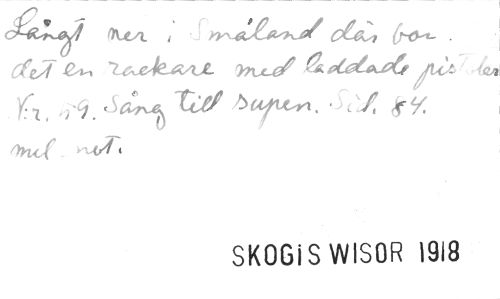 Långt ner i Småland där bor
det en rackare med laddade pistoler
Nr. 59. Sång till supen. Sid. 84.
mel. not.
SKOGIS WISOR 1918